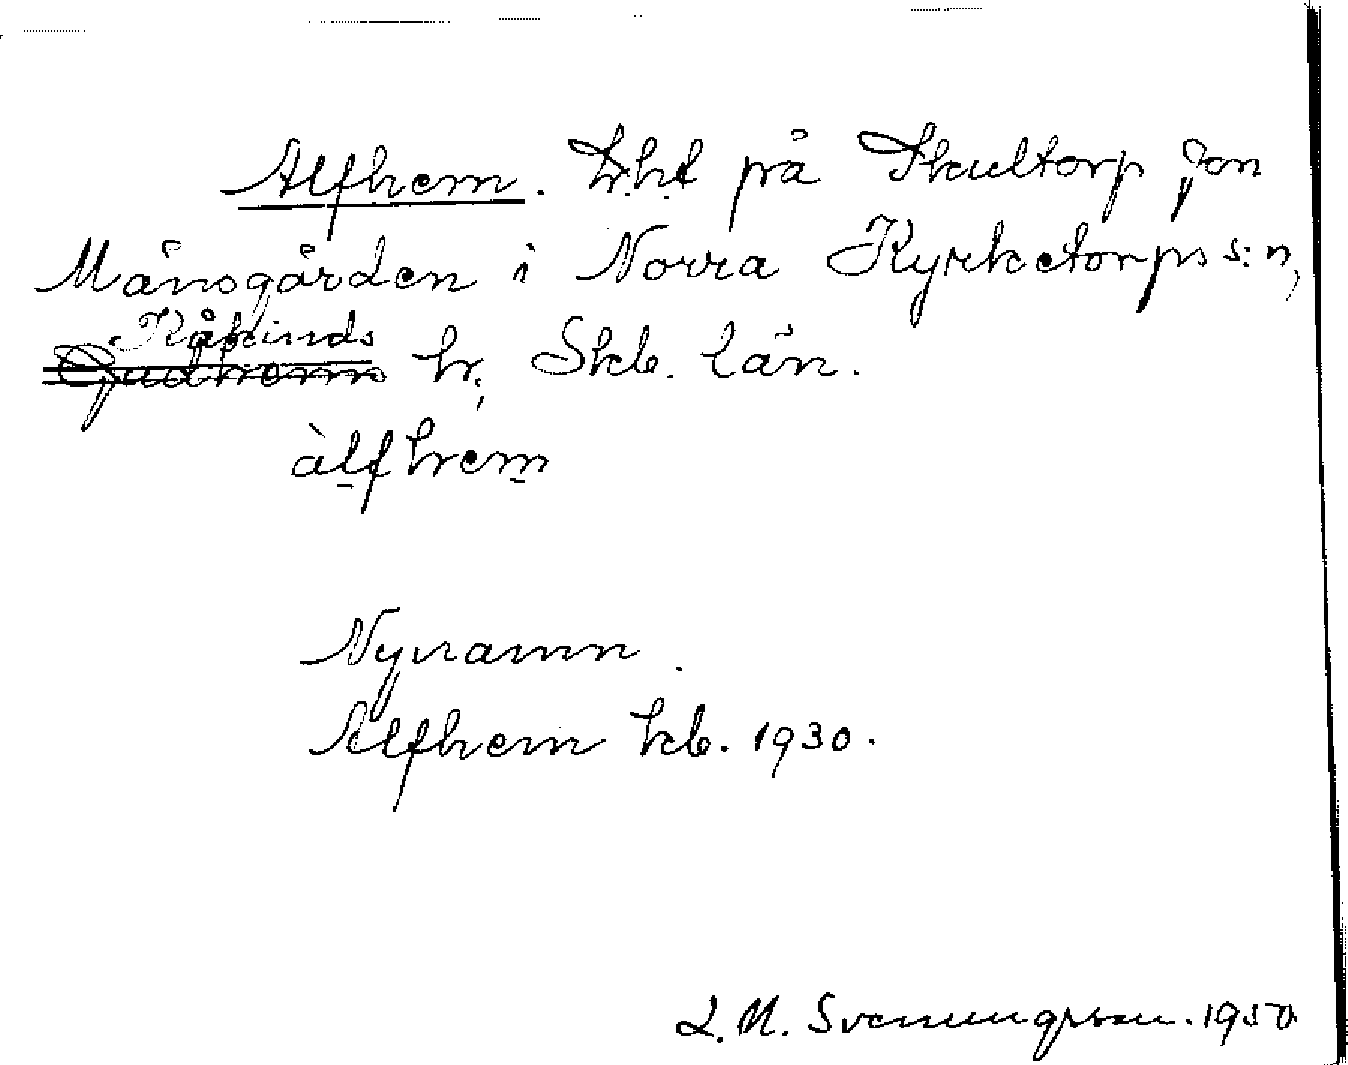 Alfhem. Lht på Skultorp Jon
Månsgården i Norra Kyrketorps s:n,
Kåkinds
Gudhems hr, Skb. län.
àlfhem
Nynamn.
Alfhem kb. 1930.
L. M. Svenungsson. 1950